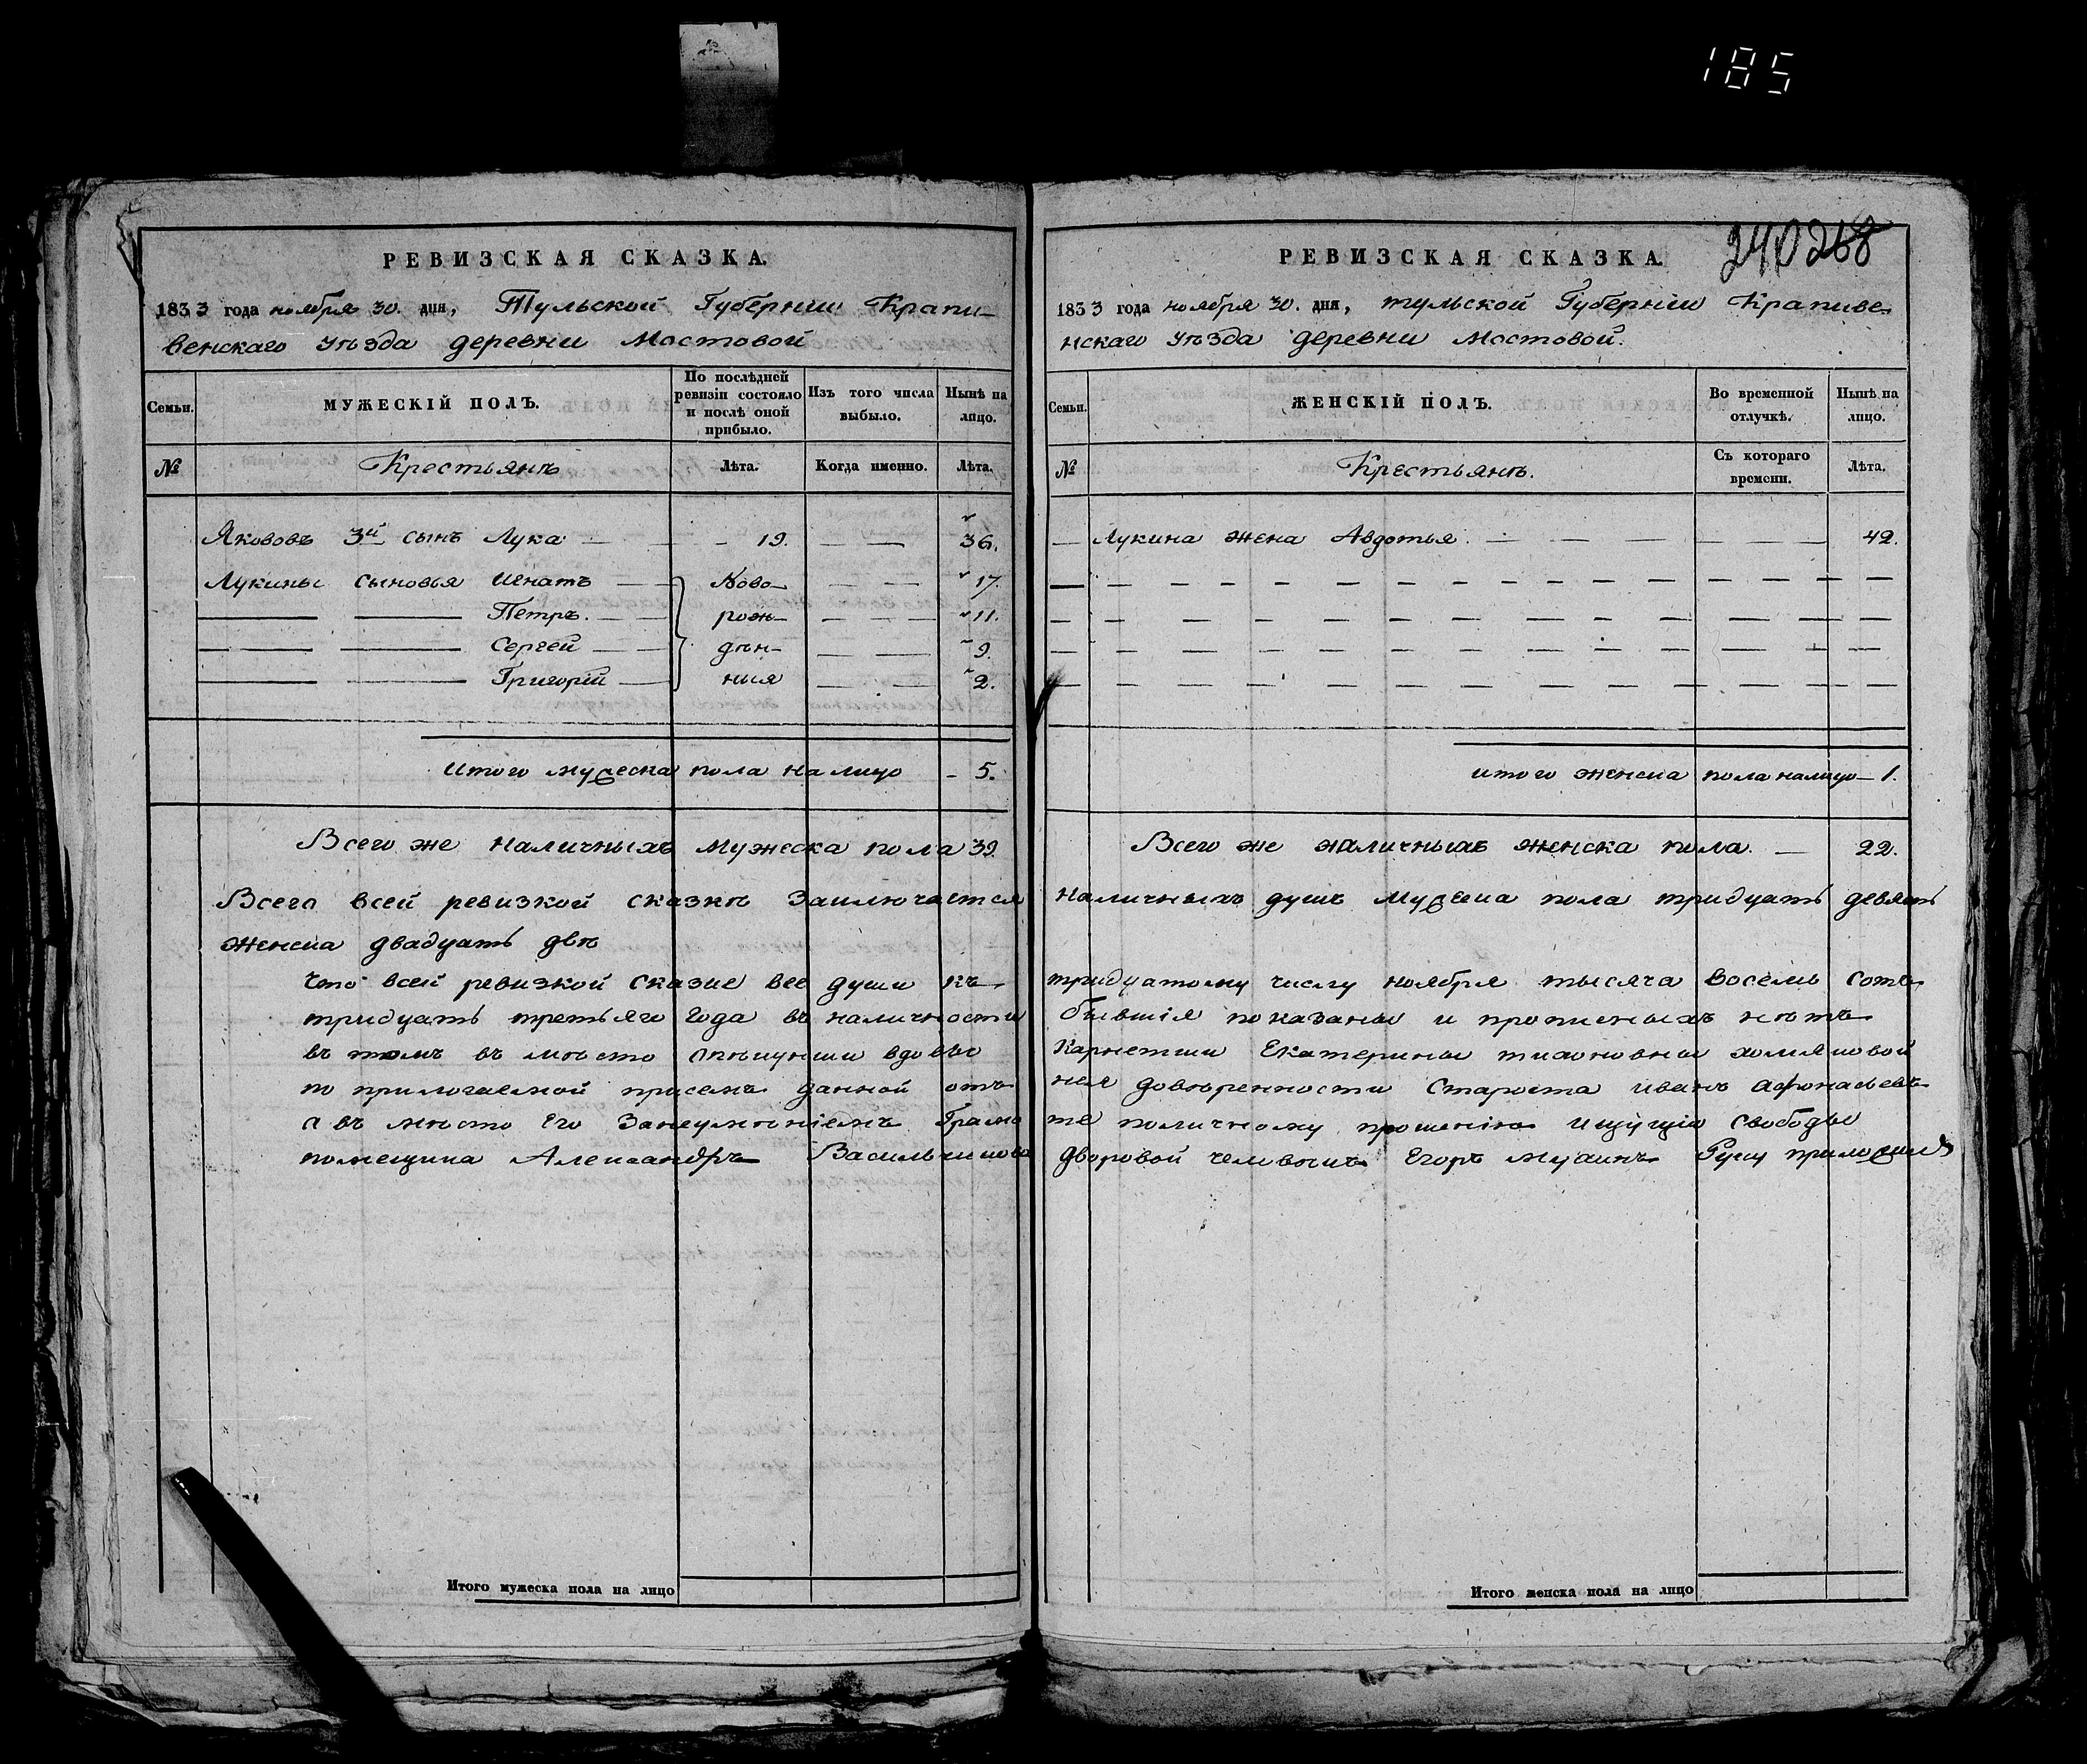 185
РЕВИЗСКАЯ СКАЗКА.
1833 года ноября 30. дня, Тульской Губерніи Крапи-
венскаго уѣзда деревни Мостовой
Семьи.
МУЖЕСКІЙ ПОЛЪ.
По послѣдней ревизіи состояло и послѣ оной прибыло.
Изъ того числа выбыло.
Нынѣ на лицо.
№
Крестьянъ
Лѣта.
Когда именно.
Лѣта.
Яковъ 3й сынъ Лука 19. 36.
Лукины сыновья Игнатъ Ново- 17.
Петръ. рож- 11.
Сергей дѣн- 9.
Григорій ныя 2.
Итого мужеска пола на лицо 5.
Всего же наличныхъ мужеска пола 39.
Всего всей ревизкой сказкѣ Заключается
женска двадцать двѣ
что всей ревизкой сказке все души къ
тридцать третьяго года въ наличности
въ томъ въ мѣсто вдовы
по прилогаемой при семъ данной отъ
а въ мѣсто Его Грамо
помещика Александръ Васильчикова
Итого мужеска пола на лицо
240 268
РЕВИЗСКАЯ СКАЗКА.
1833 года ноября 30. дня, тульской Губерніи Крапиве-
нскаго уѣзда деревни Мостовой.
Семьи.
ЖЕНСКІЙ ПОЛЪ.
Во временной отлучкѣ.
Нынѣ на лицо.
№
Крестьянъ.
Съ котораго времени.
Лѣта.
Лукина жена Авдотья. 42.
итого женска пола налицо 1.
Всего же наличныхъ женска пола. 22.
наличныхъ душъ мужеска пола тридцать девять
тридцатому числу ноября тысяча восемь сотъ
бывшія показаны и прописныхъ нѣтъ
Екатерины тихоновны хомяковой
нея довѣренности Староста иванъ афонасьевъ
те поличному прошенію ищущія свободы
дворовой человѣкъ Егоръ мухинъ Руку приложилъ
Итого женска пола на лицо